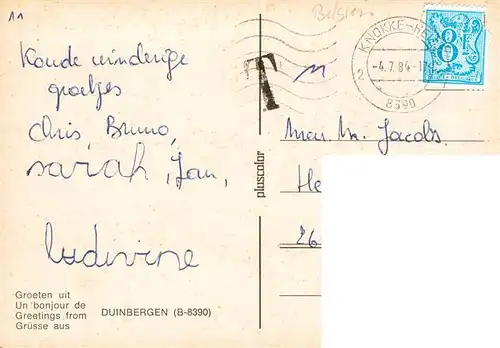 11
Koude winderige
groetjes
Chris, Bruno,
sarah, Jan,
Ludivine
Groeten uit
Un bonjour de
Greetings from
Grüsse aus
DUINBERGEN (B-8390)
pluscolor
T
Belgien
KNOKKE-HE
2
-4.7.84-17
8390
8F
Mev. Mr. Jacobs
He
26